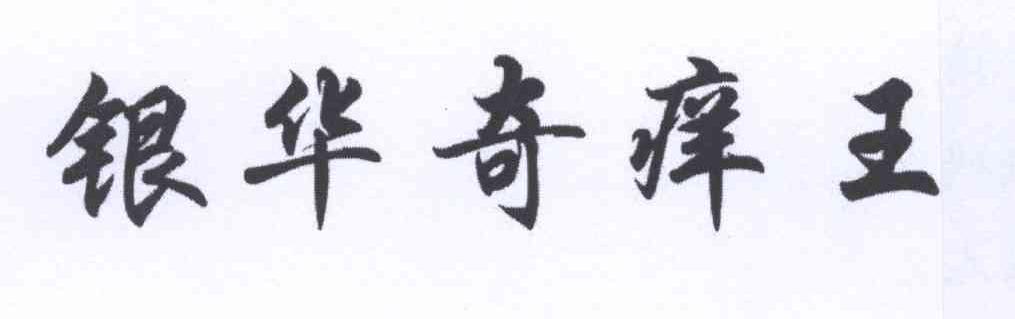 银华奇痒王